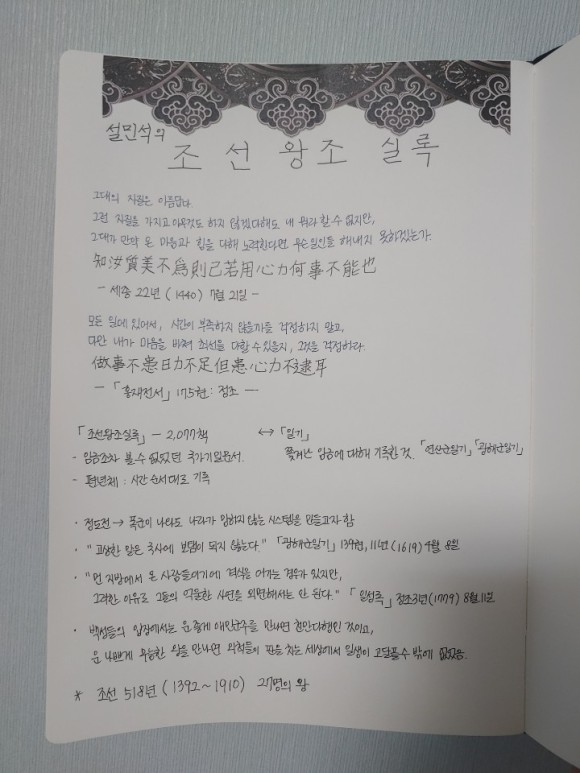 설민석의
조선왕조실록
그대의 자질은 아름답다.
그런 자질을 가지고 아무것도 하지 않겠다해도 내 뭐라 할 수 없지만,
그대가 만약 온 마음과 힘을 다해 노력한다면 무슨일인들 해내지 못하겠는가.
知汝質美不爲則已若用心力何事不能也
- 세종 22년 (1440) 7월 21일 -
모든 일에 있어서, 시간이 부족하지 않을까를 걱정하지 말고,
다만 내가 마음을 바쳐 최선을 다할 수 있을지, 그것을 걱정하라.
做事不患日力不足但患心力不逮耳
- 「홍재전서」 175권: 정조 -
「조선왕조실록」 - 2,077책 ↔ 「일기」
- 임금조차 볼 수 없었던 국가기밀문서. 쫓겨난 임금에 대해 기록한 것. 「연산군일기」「광해군일기」
- 편년체 : 시간 순서대로 기록
· 정도전 → 폭군이 나와도 나라가 망하지 않는 시스템을 만들고자 함
· "고상한 말은 국사에 보탬이 되지 않는다." 「광해군일기」 139권, 11년 (1619) 4월 8일
· "먼 지방에서 온 사람들이기에 격식을 어기는 경우가 있지만,
그러한 이유로 그들의 억울한 사연을 외면해서는 안 된다." 「일성록」 정조3년 (1779) 8월 11일
· 백성들의 입장에서는 운 좋게 애민군주를 만나면 천만다행인 것이고,
운 나쁘게 무능한 왕을 만나면 외척들이 판을 치는 세상에서 일생이 고달플 수 밖에 없었음.
* 조선 518년 (1392~1910) 27명의 왕